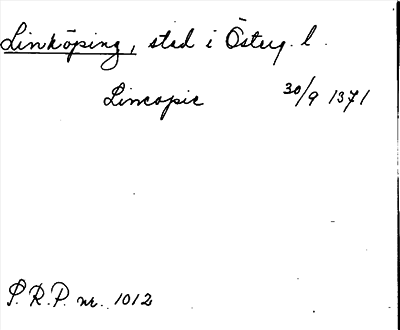 Linköping, stad i Österg. l.
Lincopie 30/9 1371
P.R.P. nr. 1012